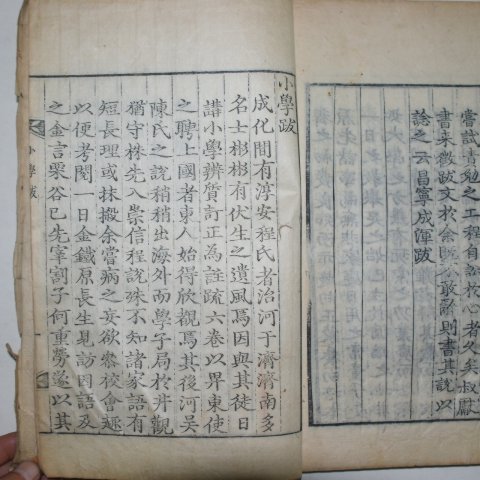 嘗試責勉之工程自訟於心者久矣叔獻
書来徵跋文於余既不敢辭則書其說以
諗之云昌寧成渾跋
小學跋
成化間有淳安程氏者治河于濟濟南多
名士彬彬有伏生之遺風焉因與其徒日
講小學辨質訂正為註疏六卷以畀東使
之聘上國者東人始得欣觀焉其後河吳
陳氏之說稍稍出海外而學子局於井觀
猶守株先入崇信程說殊不知諸家語有
短長理或抹摋余嘗病之妄欲叅校會
以便考閱一日金鐵原長生見訪因語及
之金言栗谷已先宰割子何重勞遂以其
小學跋